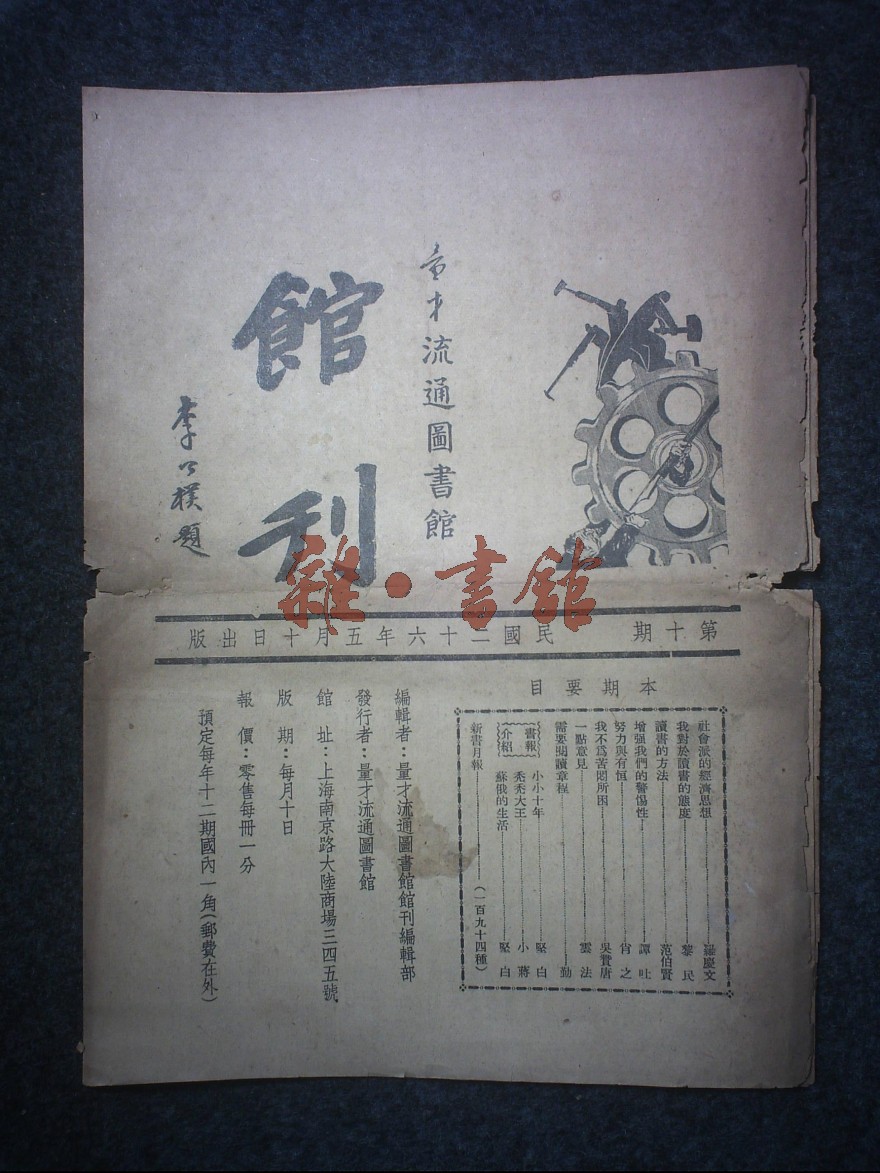 量才流通圖書館
館刊
李公樸題
雜·書館
第十期 民國二十六年五月十日出版
本期要目
社會派的經濟思想 羅慶文
我對於讀書的態度 黎民
讀書的方法 范伯賢
增强我們的警惕性 譚吐
努力與有恒 肖之
我不爲苦悶所困 吳賞唐
一點意見 雲法
需要閱讀章程 勤
書報介紹
小小十年 堅白
禿禿大王 小蔣
蘇俄的生活 堅白
新書月報 (一百九十四種)
編輯者：量才流通圖書館館刊編輯部
發行者：量才流通圖書館
館址：上海南京路大陸商場三四五號
版期：每月十日
報價：零售每冊一分
預定每年十二期國內一角(郵費在外)